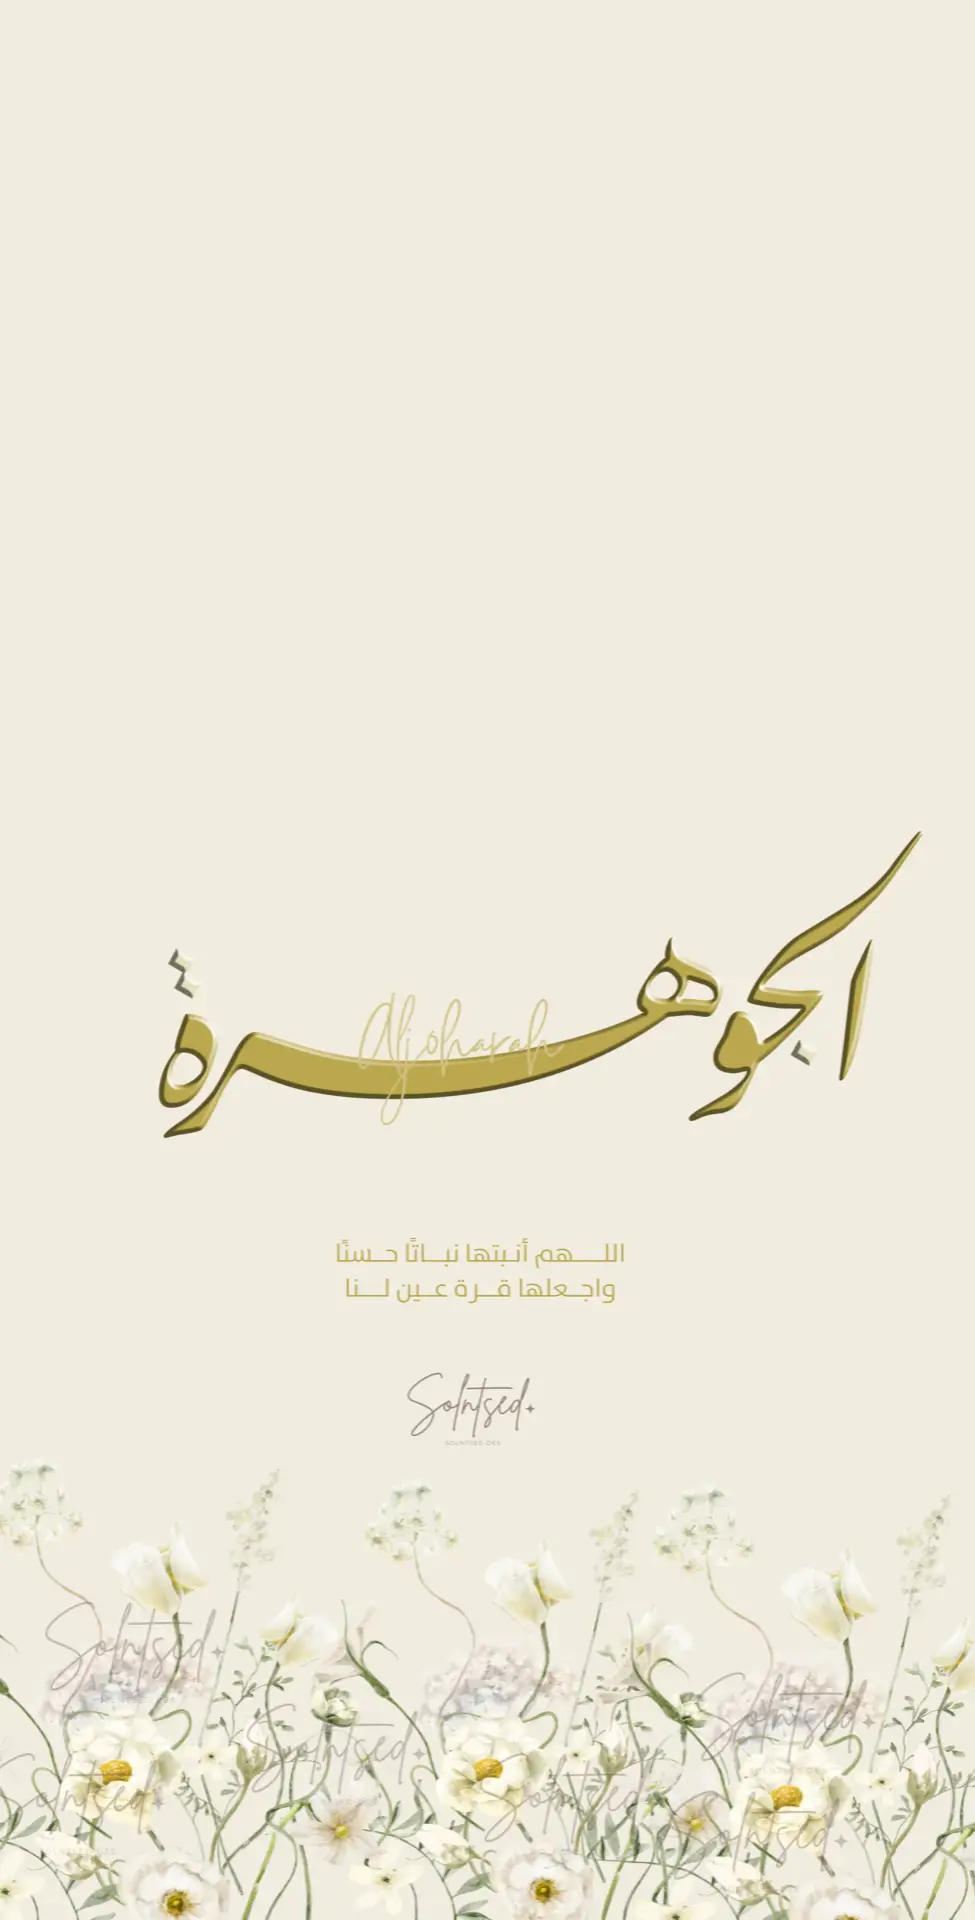 الجوهرة
Aljoharah
اللـــهم أنبتها نبـــاتًا حــسنًا
واجــعلها قــرة عــين لـــنا
Solntsed
SOLNTSED.DES
Solntsed
Solntsed
Solntsed
Solntsed
Solntsed
Solntsed